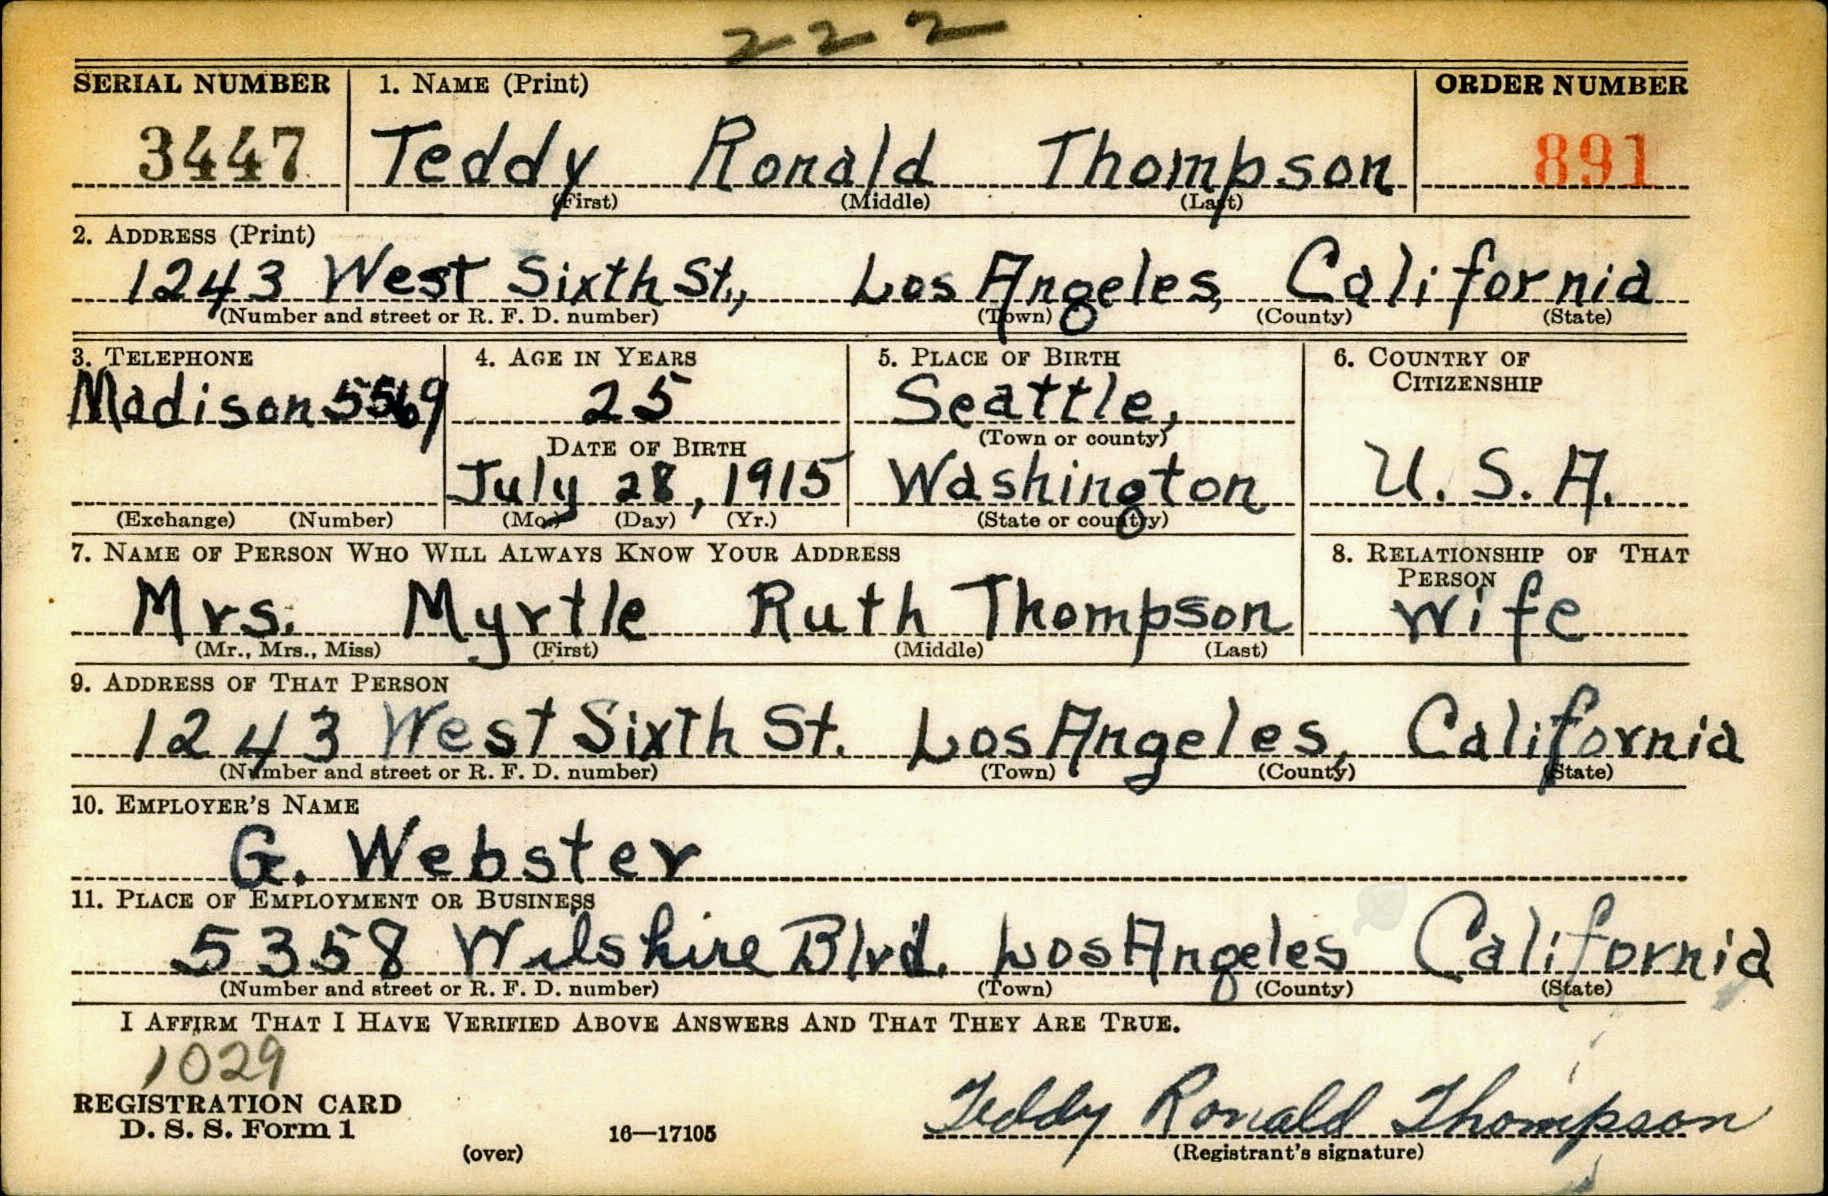 222
SERIAL NUMBER 1. NAME (Print) ORDER NUMBER
3447 Teddy Ronald Thompson 891
(First) (Middle) (Last)
2. ADDRESS (Print)
1243 West Sixth St., Los Angeles, California
(Number and street or R. F. D. number) (Town) (County) (State)
3. TELEPHONE 4. AGE IN YEARS 5. PLACE OF BIRTH 6. COUNTRY OF
CITIZENSHIP
Madison 5569 25 Seattle,
(Town or county)
DATE OF BIRTH
July 28, 1915 Washington U. S. A.
(Exchange) (Number) (Mo.) (Day) (Yr.) (State or country)
7. NAME OF PERSON WHO WILL ALWAYS KNOW YOUR ADDRESS 8. RELATIONSHIP OF THAT
PERSON
Mrs. Myrtle Ruth Thompson Wife
(Mr., Mrs., Miss) (First) (Middle) (Last)
9. ADDRESS OF THAT PERSON
1243 West Sixth St. Los Angeles, California
(Number and street or R. F. D. number) (Town) (County) (State)
10. EMPLOYER'S NAME
G. Webster
11. PLACE OF EMPLOYMENT OR BUSINESS
5358 Wilshire Blvd. Los Angeles California
(Number and street or R. F. D. number) (Town) (County) (State)
I AFFIRM THAT I HAVE VERIFIED ABOVE ANSWERS AND THAT THEY ARE TRUE.
1029
REGISTRATION CARD
D. S. S. Form 1 16—17105 Teddy Ronald Thompson
(over) (Registrant's signature)